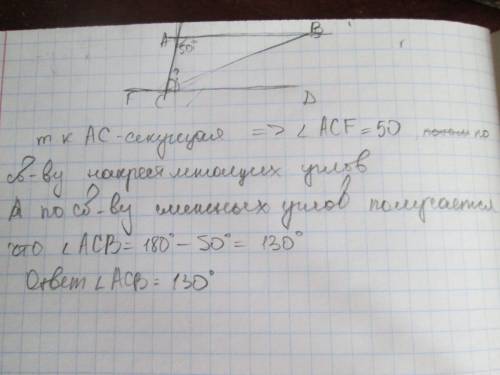 A B
50°
?
F C D
т к AC-секущая => ∠ACF = 50 по
св-ву накрест лежащих углов
А по св-ву смежных углов получается
что ∠ACB = 180° - 50° = 130°
Ответ ∠ACB = 130°